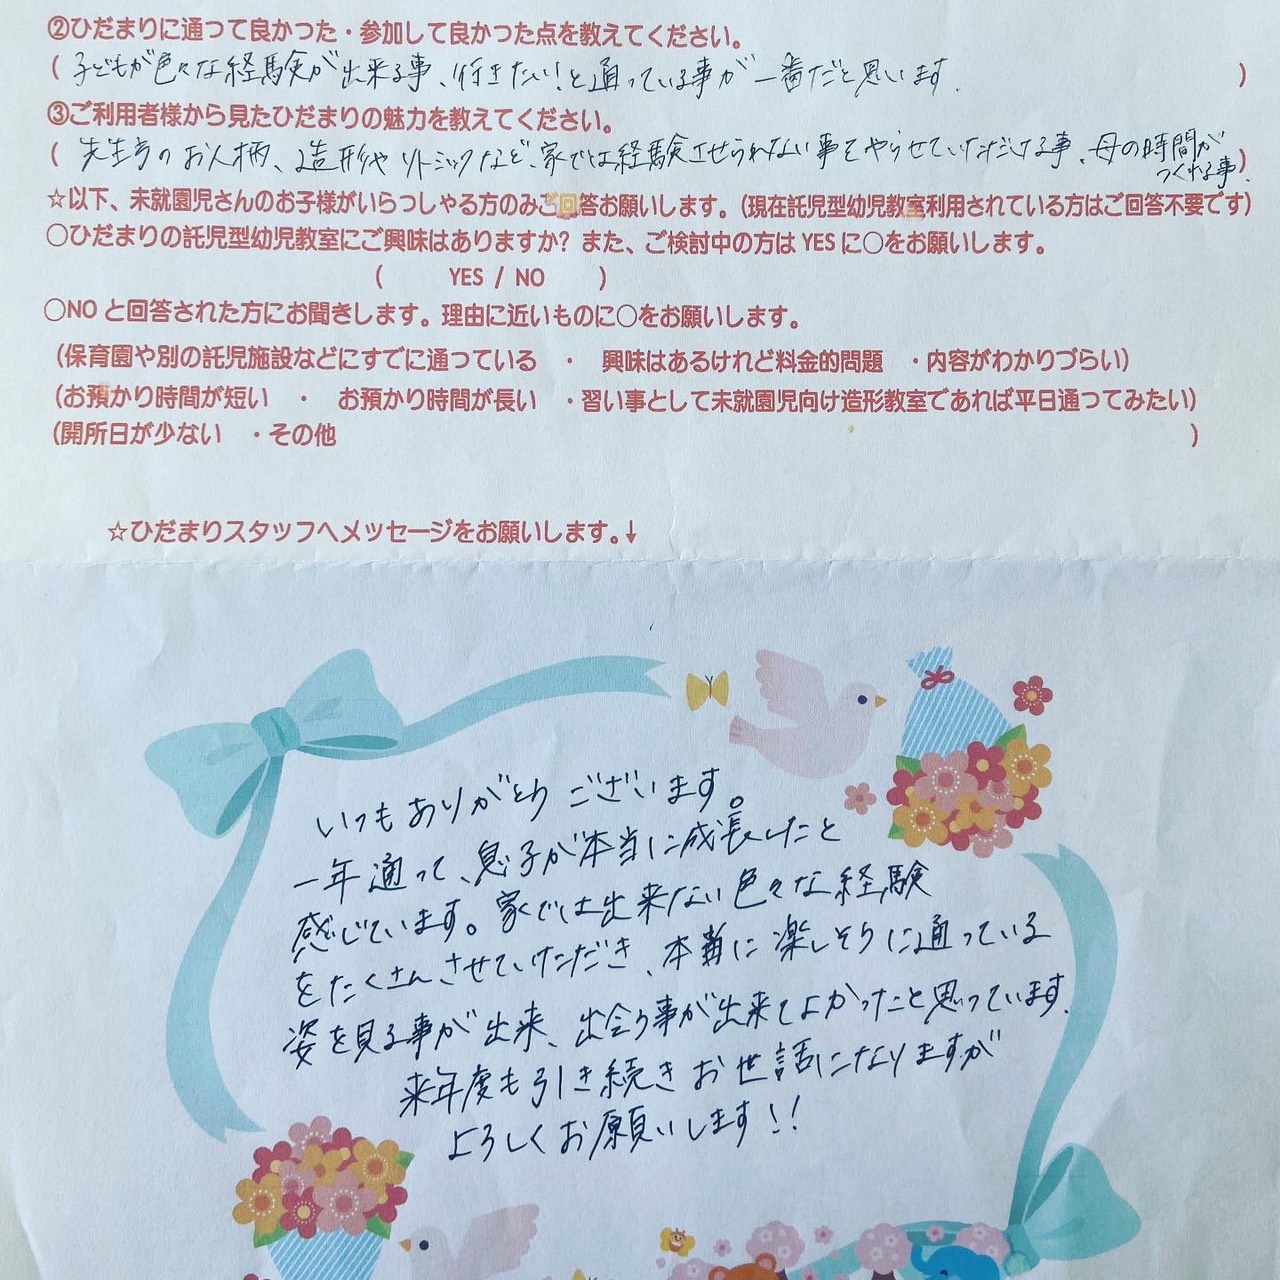 ②ひだまりに通って良かった・参加して良かった点を教えてください。
(子どもが色々な経験が出来る事、行きたい!と通っている事が一番だと思います.)
③ご利用者様から見たひだまりの魅力を教えてください。
(先生方のお人柄、造形やリトミックなど、家では経験させられない事をやらせていただける事、母の時間が
つくれる事.)
☆以下、未就園児さんのお子様がいらっしゃる方のみご回答お願いします。(現在託児型幼児教室利用されている方はご回答不要です)
○ひだまりの託児型幼児教室にご興味はありますか?また、ご検討中の方はYESに○をお願いします。
( YES / NO )
○NOと回答された方にお聞きします。理由に近いものに○をお願いします。
(保育園や別の託児施設などにすでに通っている ・ 興味はあるけれど料金的問題 ・内容がわかりづらい)
(お預かり時間が短い ・ お預かり時間が長い ・習い事として未就園児向け造形教室であれば平日通ってみたい)
(開所日が少ない ・その他 )
☆ひだまりスタッフへメッセージをお願いします。↓
いつもありがとうございます。
一年通って、息子が本当に成長したと
感じています。家では出来ない色々な経験
をたくさんさせていただき、本当に楽しそうに通っている
姿を見る事が出来、出会う事が出来てよかったと思っています.
来年度も引き続きお世話になりますが
よろしくお願いします!!